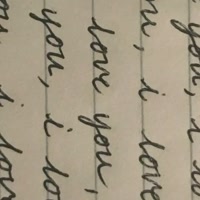 you, i lo
ou, i love
love you,
you, i lo
ou, i lov